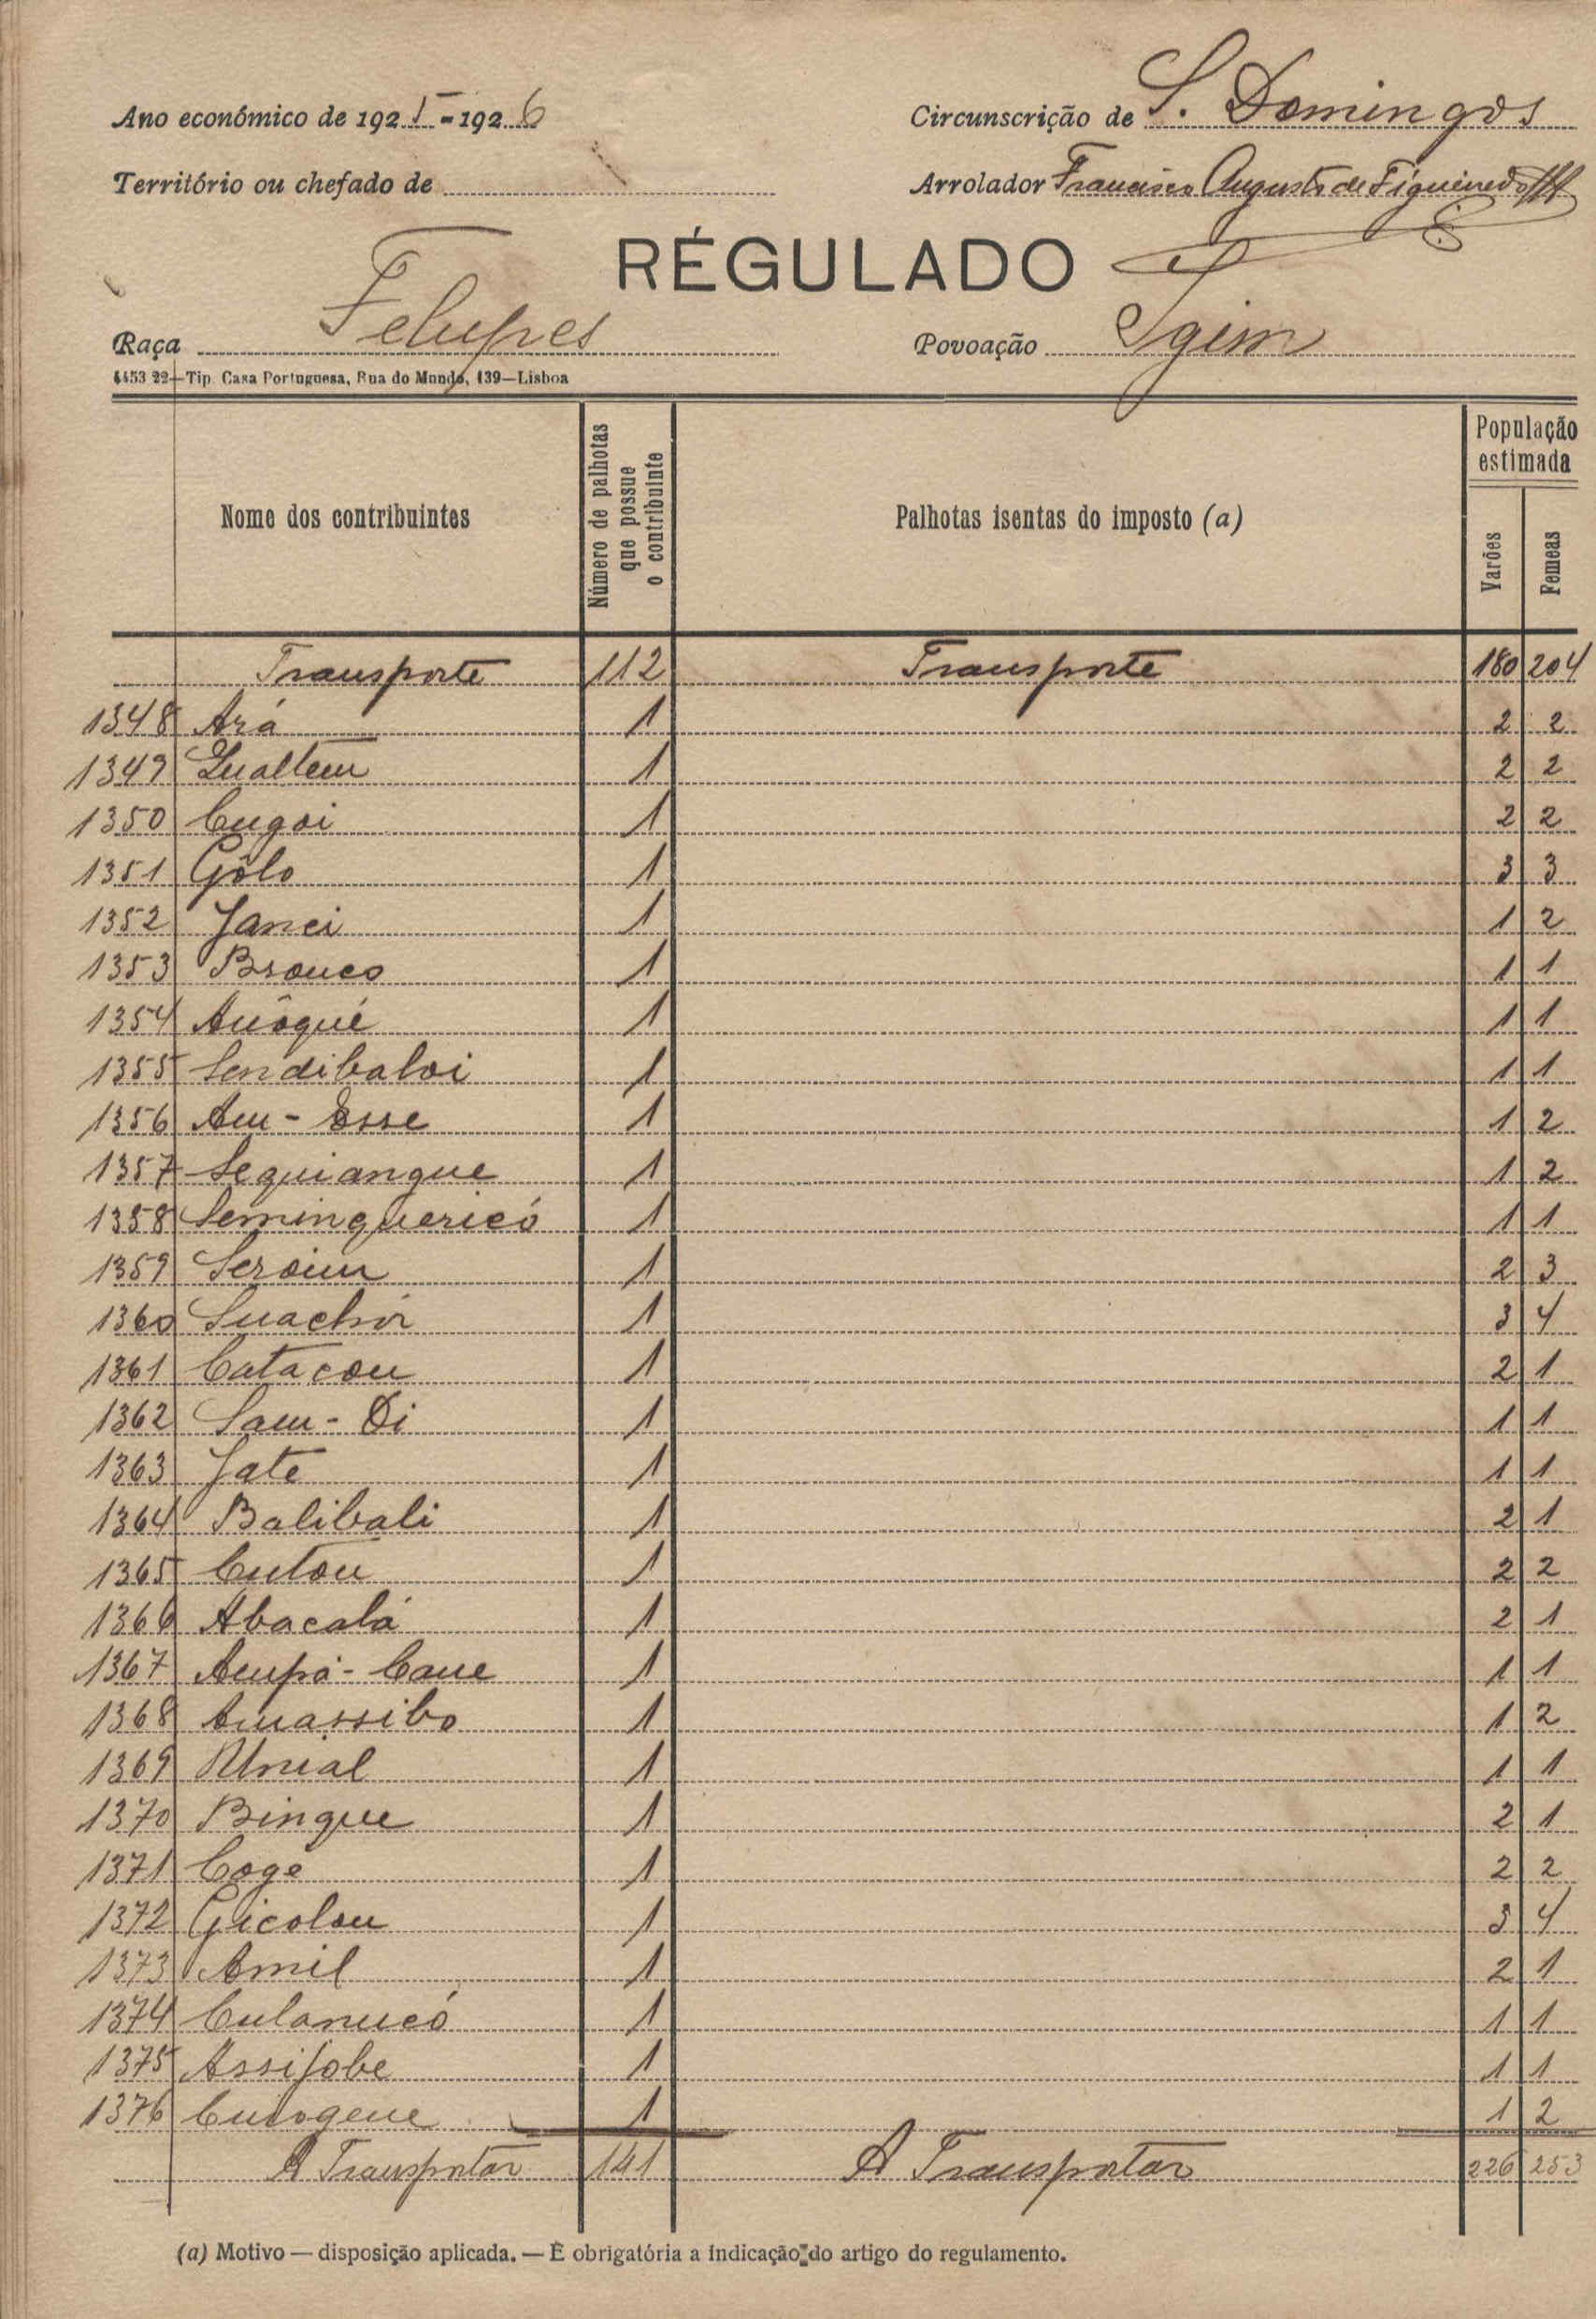 Ano económico de 1925-1926
Circunscrição de S. Domingos
Território ou chefado de
Arrolador Francisco Augusto de Figueiredo
RÉGULADO
Raça Felupes
Povoação Igim
4453 22—Tip. Casa Portuguesa, Rua do Mundo, 139—Lisboa
Nome dos contribuintes
Número de palhotas que possue o contribuinte
Palhotas isentas do imposto (a)
População estimada
Varões
Femeas
Transporte 112 Transporte 180 204
1348 Ará 1 2 2
1349 1 2 2
1350 Cugoi 1 2 2
1351 Gôlo 1 3 3
1352 Janei 1 1 2
1353 1 1 1
1354 Auôqué 1 1 1
1355 Sendibaloi 1 1 1
1356 Am-Esse 1 1 2
1357 Sequiangue 1 1 2
1358 Seminquericó 1 1 1
1359 Seroim 1 2 3
1360 Suachór 1 3 4
1361 Catacou 1 2 1
1362 Sam-Di 1 1 1
1363 Jate 1 1 1
1364 Balibali 1 2 1
1365 Cutou 1 2 2
1366 Abacalá 1 2 1
1367 Ampá-Caue 1 1 1
1368 Amassibo 1 1 2
1369 1 1 1
1370 Bingue 1 2 1
1371 Coge 1 2 2
1372 Gicolou 1 3 4
1373 Amil 1 2 1
1374 Culanucó 1 1 1
1375 Assijobe 1 1 1
1376 1 1 2
A Transportar 141 A Transportar 226 253
(a) Motivo — disposição aplicada. — É obrigatória a indicação do artigo do regulamento.